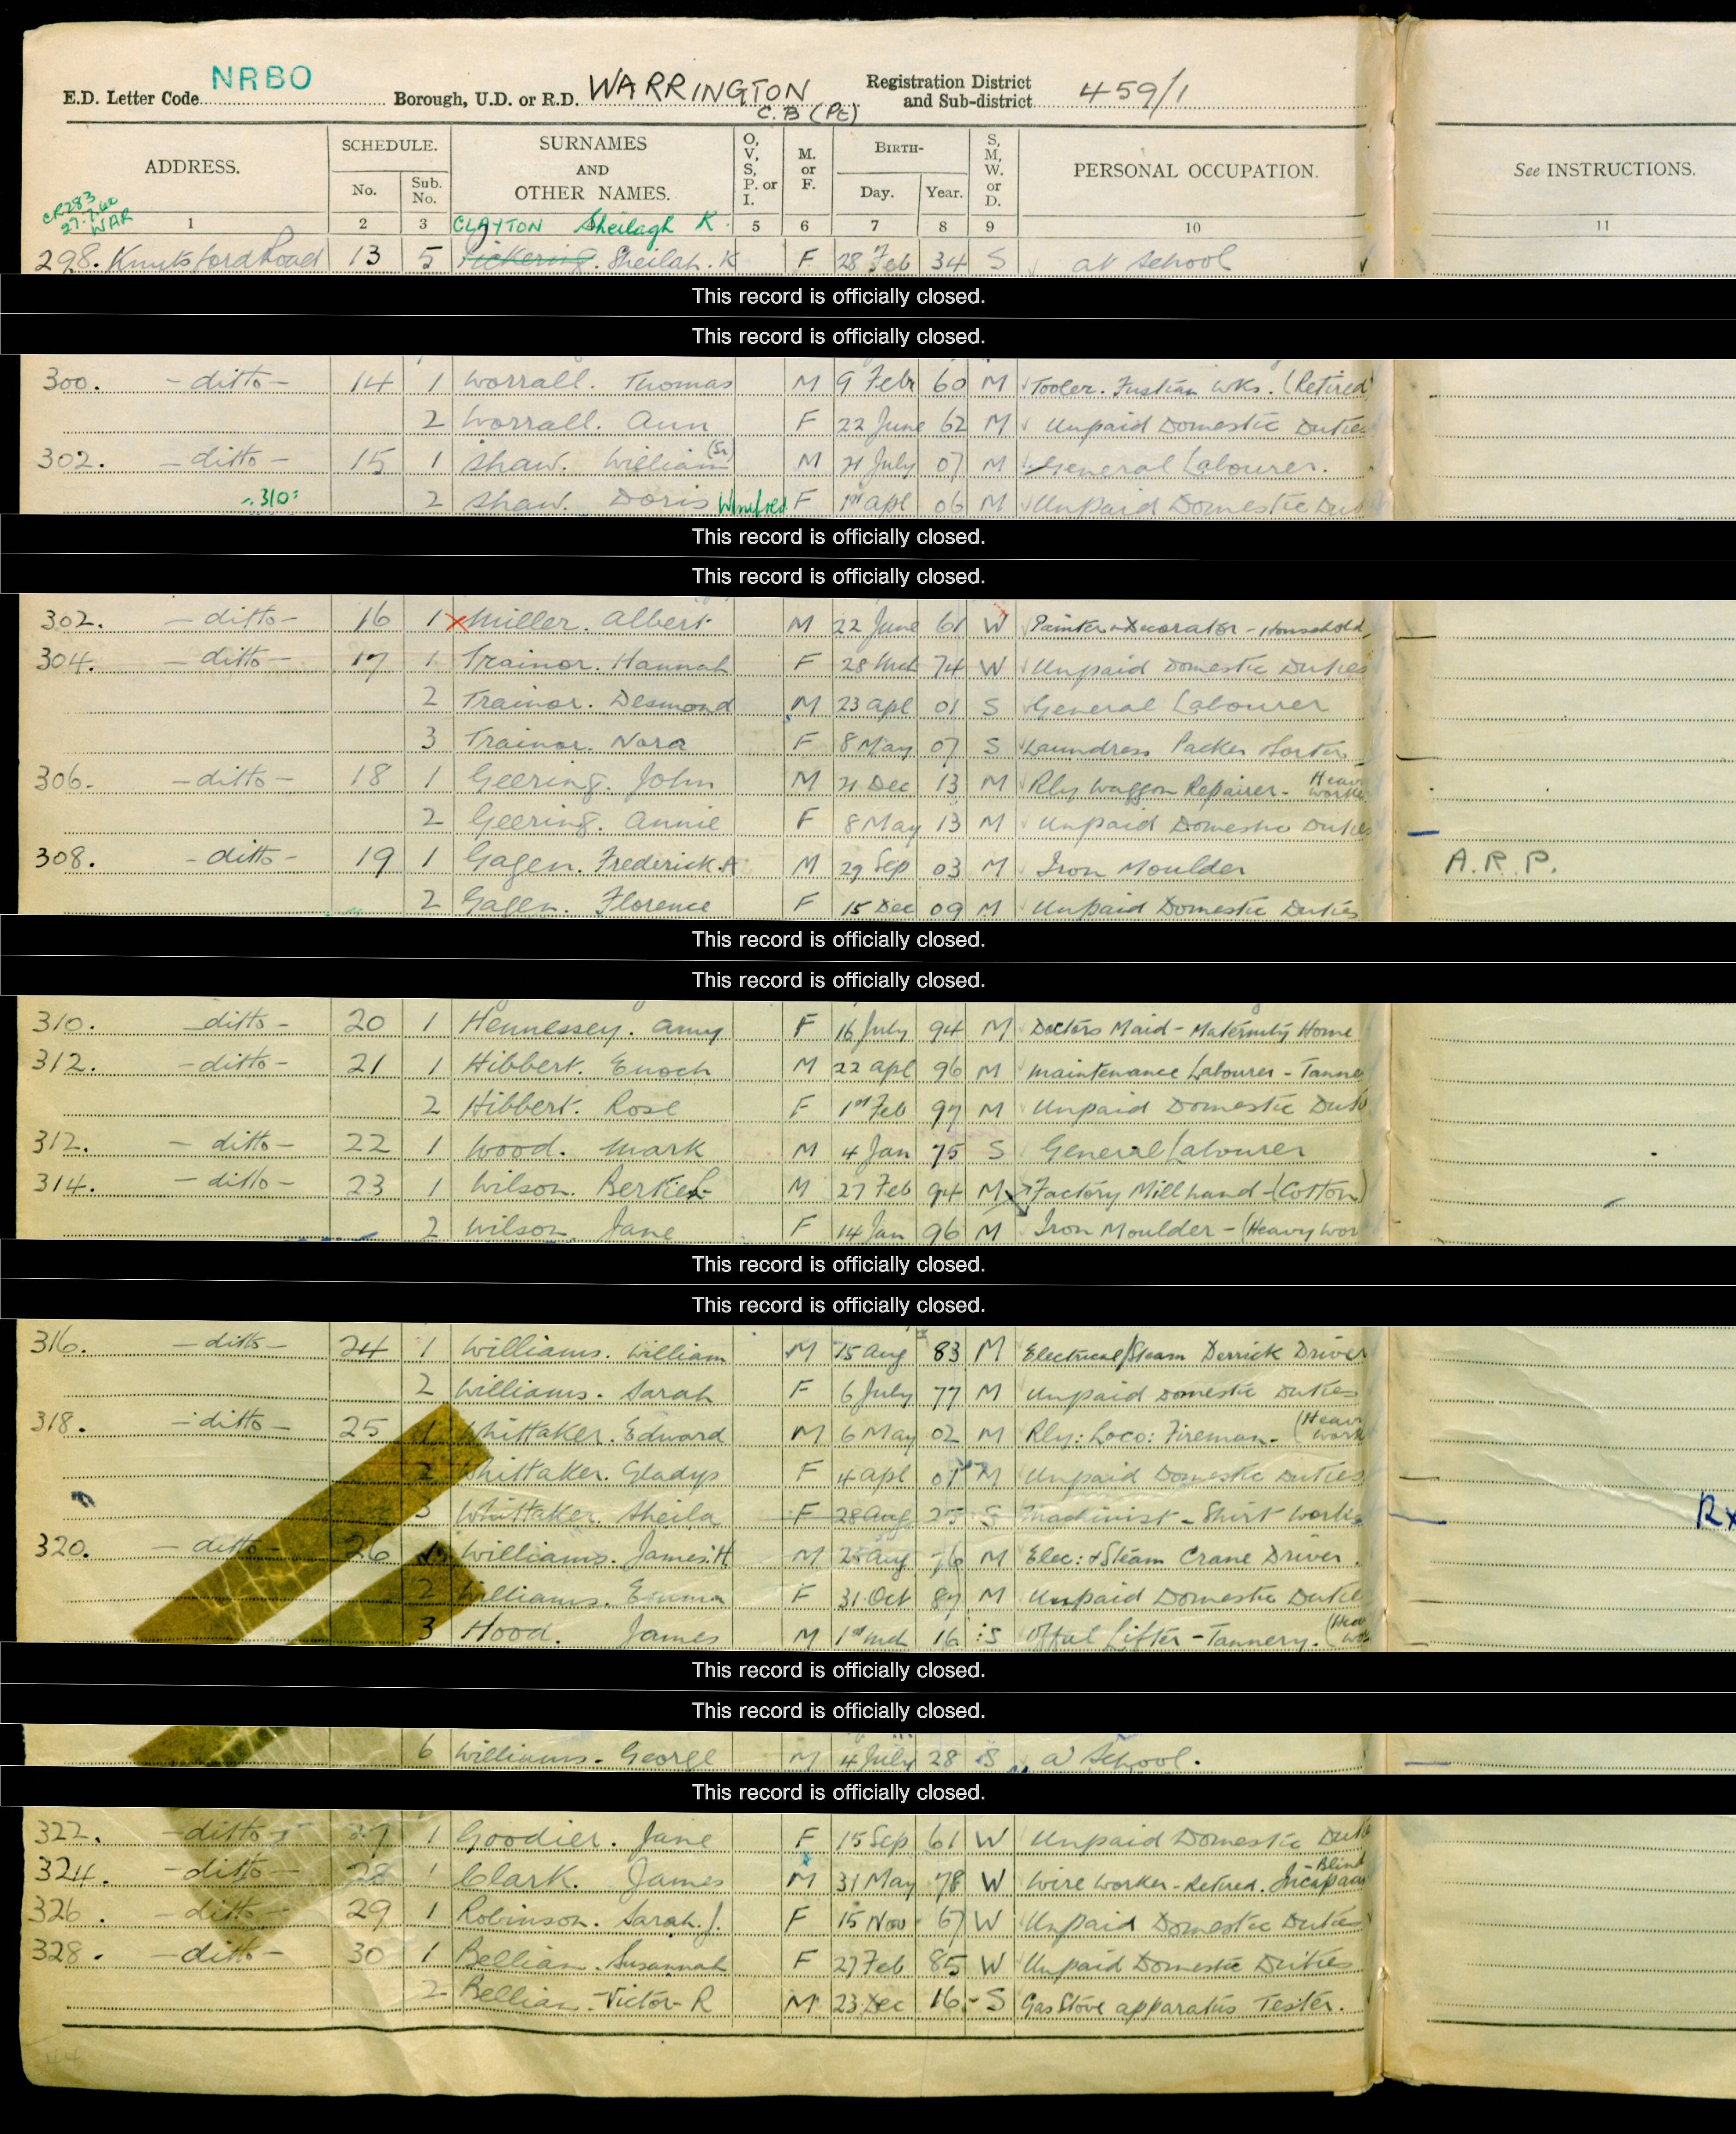 E.D. Letter Code NRBO Borough, U.D. or R.D. WARRINGTON C.B (Pt) Registration District and Sub-district 459/1
ADDRESS. SCHEDULE. No. Sub. No. SURNAMES AND OTHER NAMES. O, V, S, P. or I. M. or F. BIRTH- Day. Year. S, M, W. or D. PERSONAL OCCUPATION. See INSTRUCTIONS.
CR283 27.7.60 WAR
1 2 3 CLAYTON Sheilagh K. 5 6 7 8 9 10 11
298. Knutsford Road 13 5 Pickering. Sheilah. K F 28 Feb 34 S at School
This record is officially closed.
This record is officially closed.
300. - ditto - 14 1 Worrall. Thomas M 9 Feb 60 M Tooler. Fustian Wks. (Retired)
2 Worrall. Ann F 22 June 62 M Unpaid Domestic Duties
302. - ditto - 15 1 Shaw. William (Sr) M 21 July 07 M General Labourer.
310 2 Shaw. Doris Winifred F 1st Apl 06 M Unpaid Domestic Dut
This record is officially closed.
This record is officially closed.
302. - ditto - 16 1 Miller. Albert M 22 June 61 W Painter & Decorator - Household
304. - ditto - 17 1 Trainor. Hannah F 28 Mch 74 W Unpaid Domestic Duties
2 Trainor. Desmond M 23 Apl 01 S General Labourer
3 Trainor. Nora F 8 May 07 S Laundress Packer Sorter
306. - ditto - 18 1 Geering. John M 21 Dec 13 M Rly Waggon Repairer - Heavy Worke
2 Geering. Annie F 8 May 13 M Unpaid Domestic Duties
308. - ditto - 19 1 Gagen. Frederick. A M 29 Sep 03 M Iron Moulder A.R.P.
2 Gagen. Florence F 15 Dec 09 M Unpaid Domestic Duties
This record is officially closed.
This record is officially closed.
310. - ditto - 20 1 Hennessey. Amy F 16 July 94 M Doctors Maid - Maternity Home
312. - ditto - 21 1 Hibbert. Enoch M 22 Apl 96 M Maintenance Labourer - Tanne
2 Hibbert. Rose F 1st Feb 97 M Unpaid Domestic Duti
312. - ditto - 22 1 Wood. Mark M 4 Jan 75 S General Labourer
314. - ditto - 23 1 Wilson. Bertie M 27 Feb 94 M Factory Mill hand - (Cotton)
2 Wilson. Jane F 14 Jan 96 M Iron Moulder - (Heavy Wor
This record is officially closed.
This record is officially closed.
316. - ditto - 24 1 Williams. William M 15 Aug 83 M Electrical/Steam Derrick Driver
2 Williams. Sarah F 6 July 77 M Unpaid Domestic Duties
318. - ditto - 25 1 Whittaker. Edward M 6 May 02 M Rly: Loco: Fireman - (Heavy Work
2 Whittaker. Gladys F 4 Apl 01 M Unpaid Domestic Duties
3 Whittaker. Sheila F 28 Aug 25 S Machinist - Shirt Works Rx
320. - ditto - 26 1 Williams. James. H. M 2 Aug 76 M Elec: & Steam Crane Driver.
2 Williams. Emma F 31 Oct 87 M Unpaid Domestic Duties
3 Hood. James M 1st Mch 16 S Offal Lifter - Tannery. (Hea wo
This record is officially closed.
This record is officially closed.
6 Williams. George M 4 July 28 S at School.
This record is officially closed.
322. - ditto - 27 1 Goodier. Jane F 15 Sep 61 W Unpaid Domestic Duti
324. - ditto - 28 1 Clark. James M 31 May 78 W Wire Worker - Retired. - Blind Incapac
326. - ditto - 29 1 Robinson. Sarah. J. F 15 Nov 67 W Unpaid Domestic Duties
328. - ditto - 30 1 Bellian. Susannah F 27 Feb 85 W Unpaid Domestic Duties
2 Bellian. Victor R M 23 Dec 16 S Gas Stove apparatus Tester.